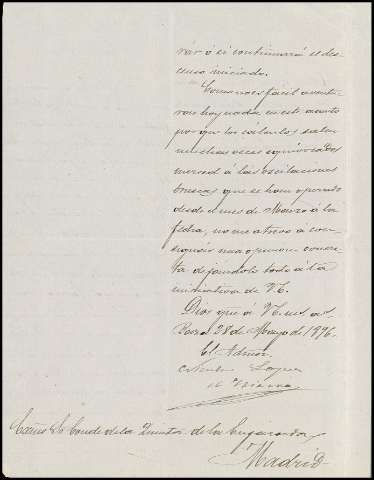 rár ó si continuará el des-
censo iniciado.
Como no es fácil aventu-
rar hoy nada en este asunto
por que los cálculos salen
muchas veces equivocados
merced á las oscilaciones
bruscas que se han operado
desde el mes de Marzo á la
fecha, no me atrevo a con-
signar una opinion concre-
ta dejándolo todo á la
iniciativa de V.E.
Dios gue á V.E. ms as
28 de Mayo de 1896.
El Admor.
Excmo Sr Conde de la Quinta de la Enjarada
Madrid